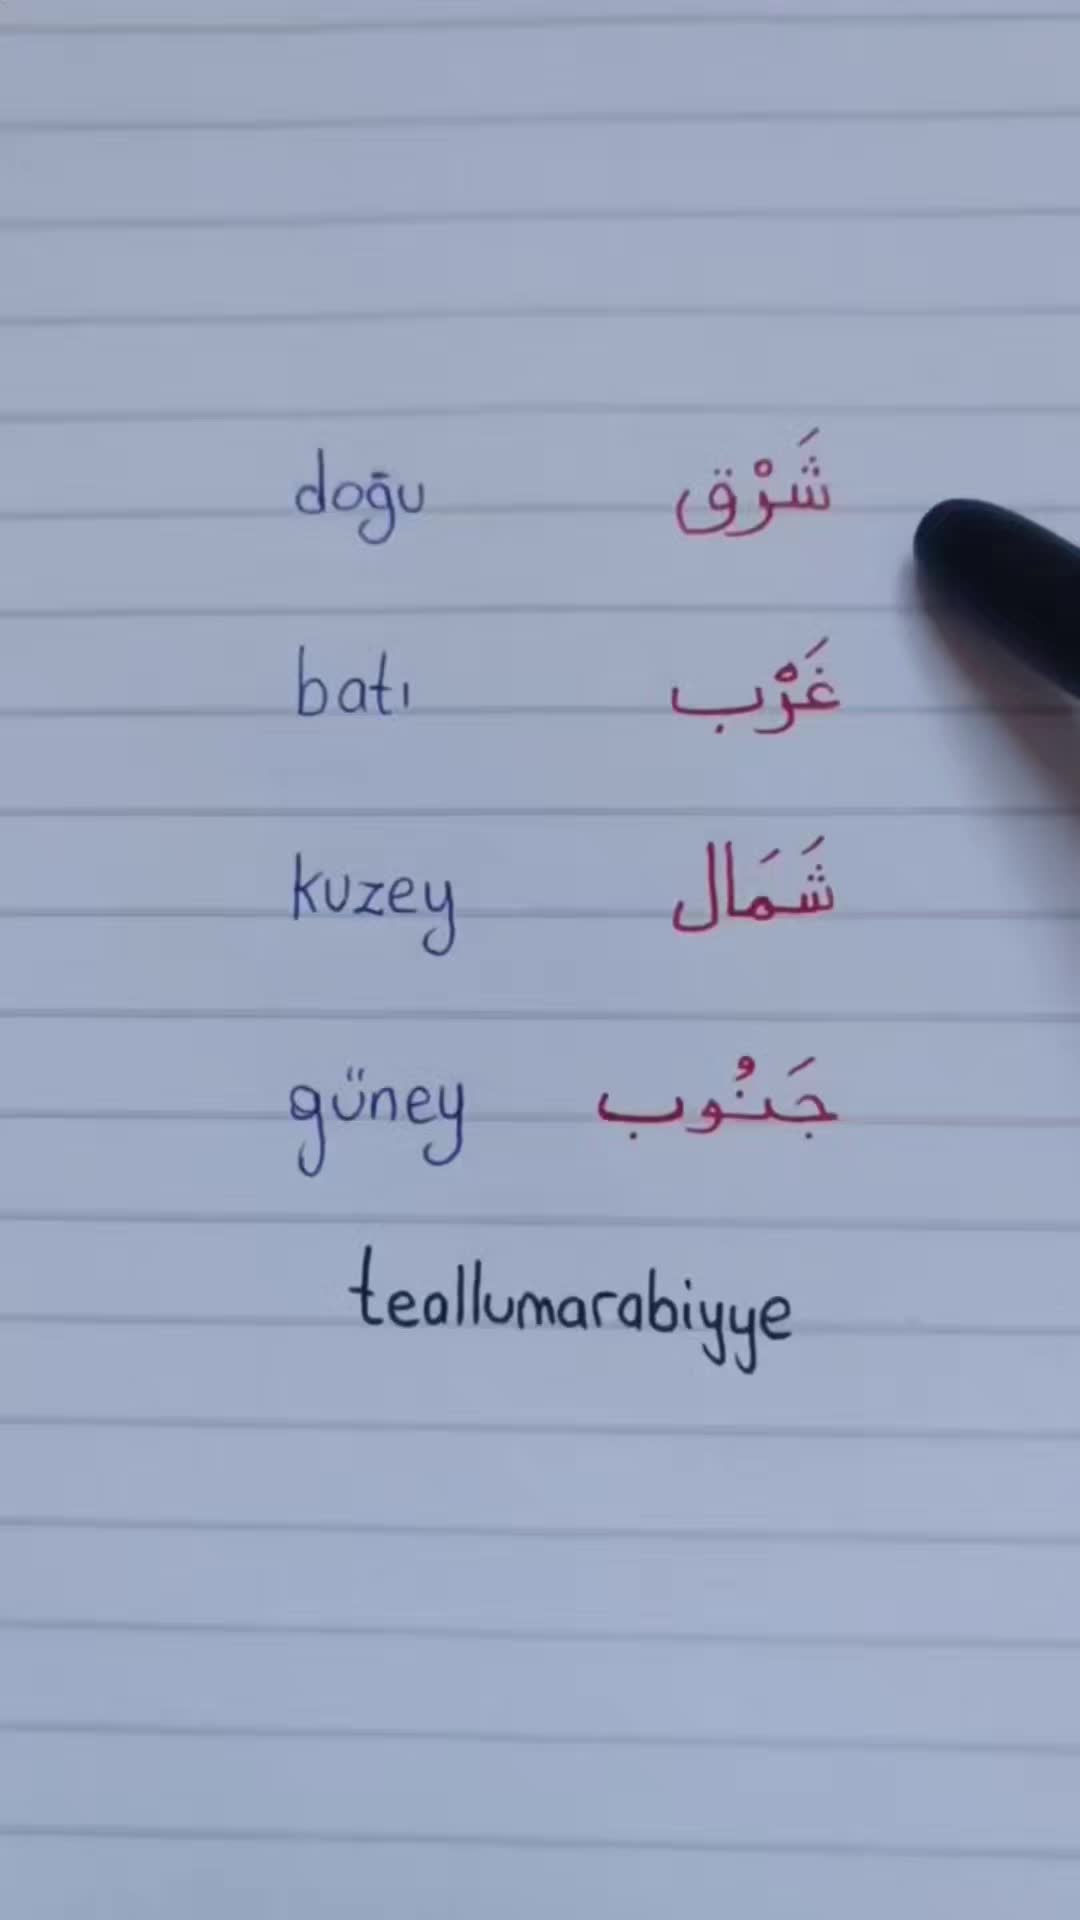 doğu شَرْق
batı غَرْب
kuzey شَمَال
güney جَنُوب
teallumarabiyye